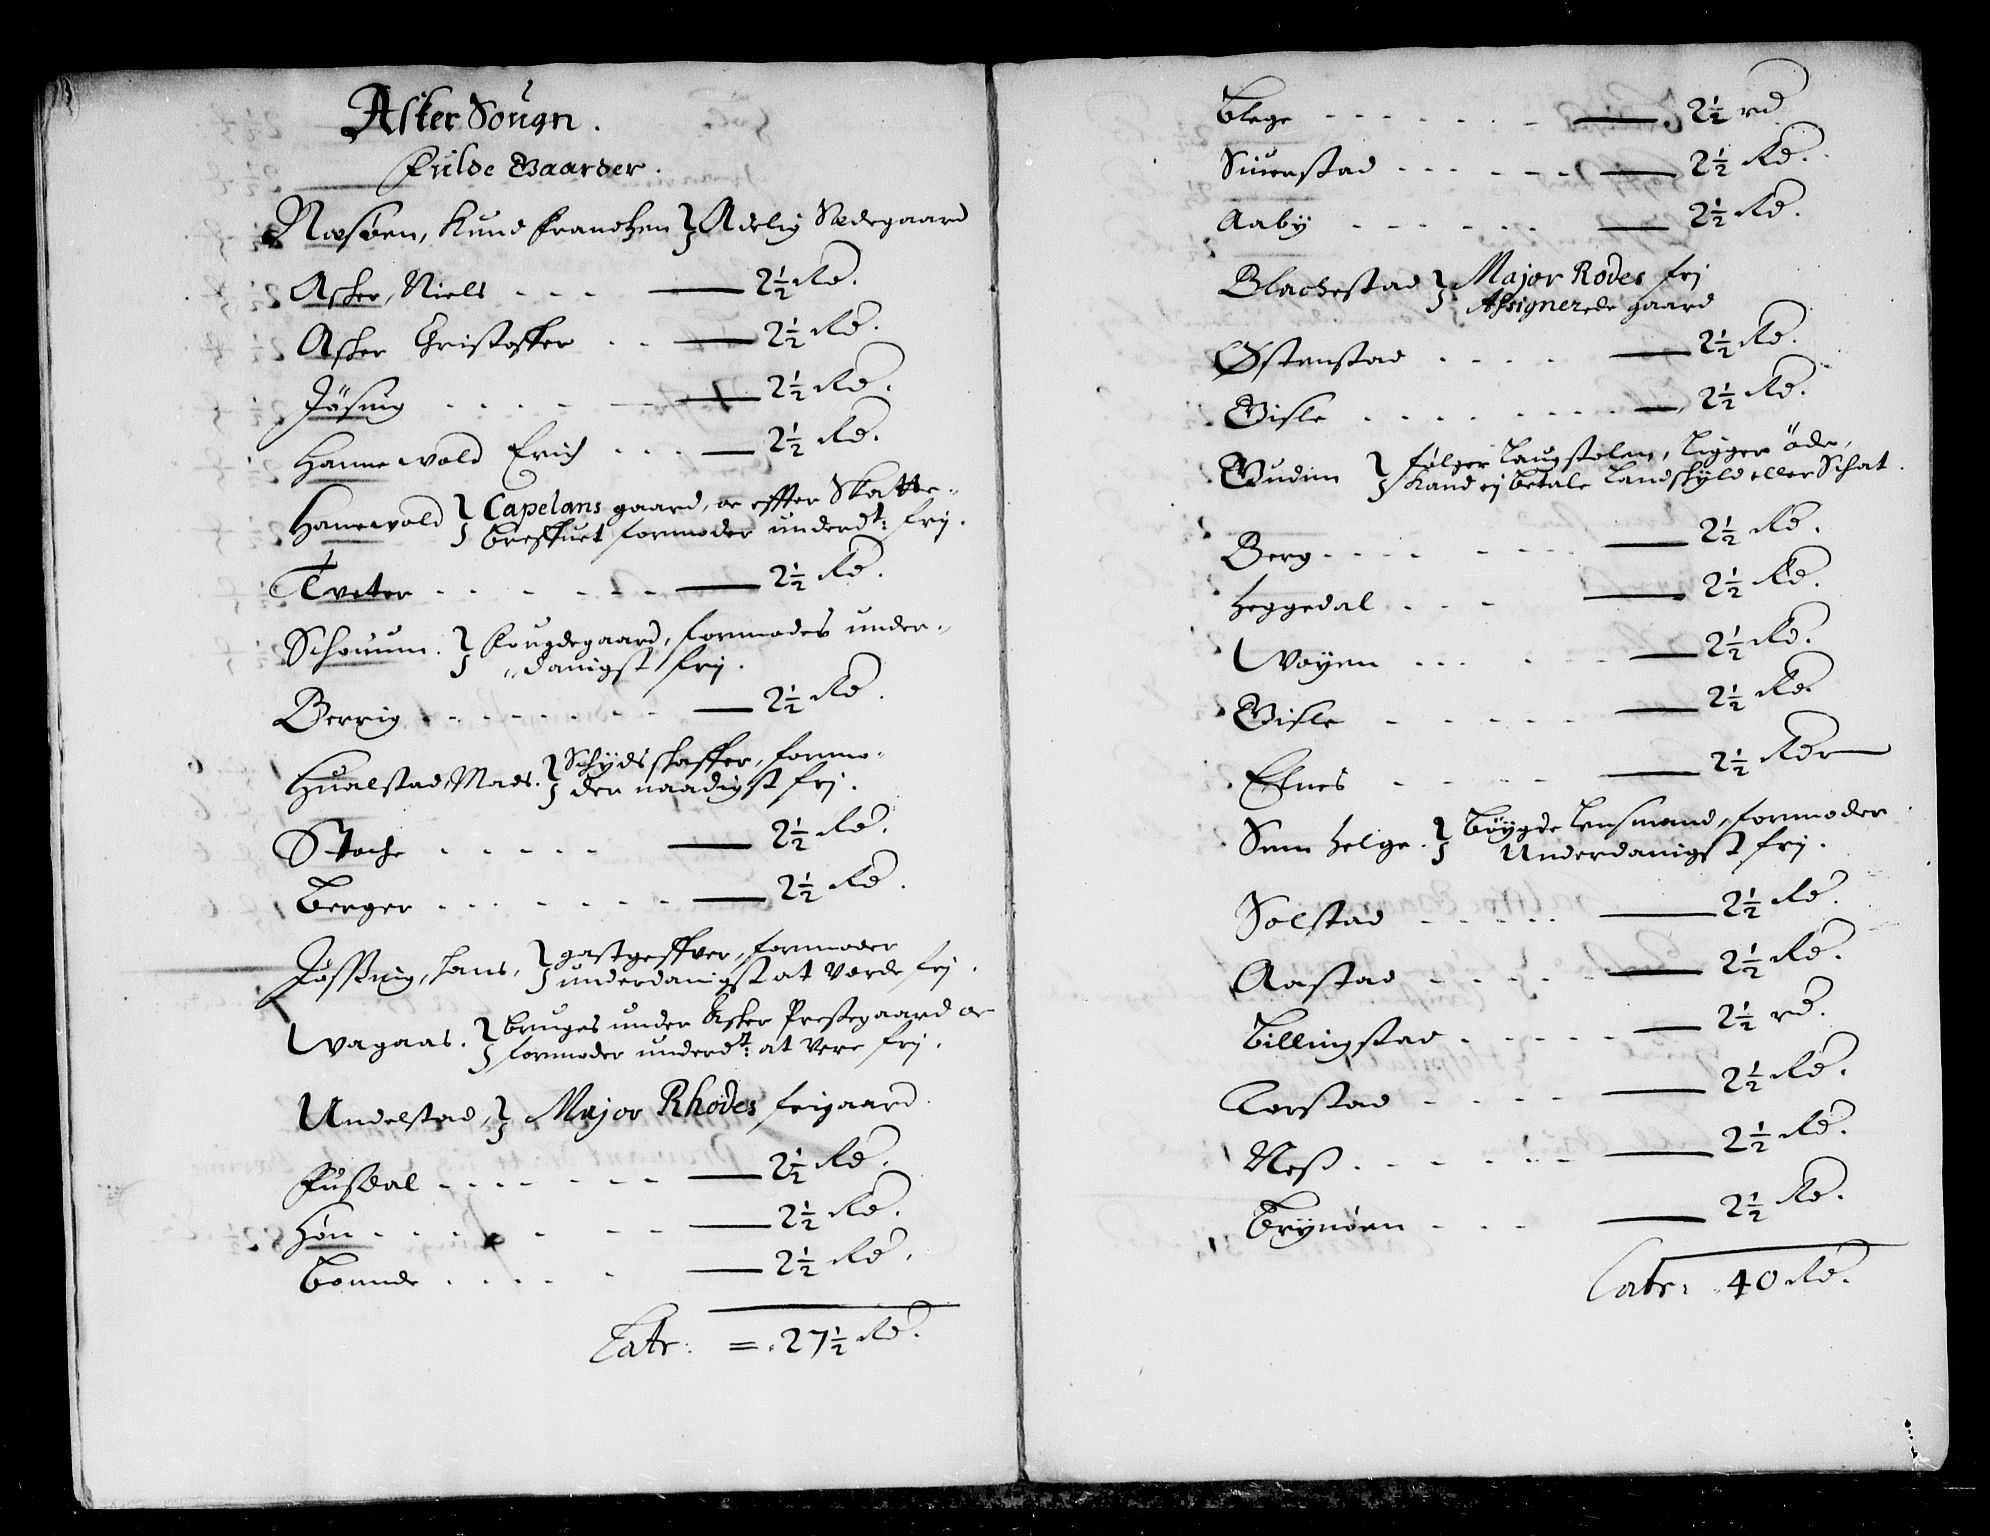 Asker Sougn.
Fulde Gaarder.
Næsøen, Knud Frandtzen } Adelig Sædegaard
Asker, Niels - - - 2½ Rd.
Asker Christoffer - - 2½ Rd.
Jøsing - - - - 2½ Rd.
Hannewold Erich - - - 2½ Rd.
Hanewold } Capelans gaard, oc effter Skatte-
breffuet formoder underdt: frij.
Tveter - - - - - - 2½ Rd.
Schouum. } Fougdegaard, formodes under-
danigst frij.
Berrig - - - - - - - 2½ Rd.
Hualstad Mads. } Schydsskaffer, formo-
der naadigst frj.
Stoche - - - - - 2½ Rd.
Berger - - - - - - - 2½ Rd.
Jøssing, Hans, } gastgeffver, formoder
underdanigst at Vorde frj.
Wagaas. } bruges under Asker Prestegaard oc
formoder underdt: at Vere frij.
Undelstad, } Major Rhodes frigaard.
Fusdal - - - - - - - 2½ Rd.
Høn - - - - - - 2½ Rd.
Bonnde - - - - - 2½ Rd.
Latr: = 27½ Rd.
Blege - - - - - - - 2½ rd
Siuerstad - - - - - - 2½ Rd.
Aaby - - - - - - 2½ Rd.
Blachestad } Major Rodes frj
Assignerede gaard
Østenstad - - - - 2½ Rd.
Gisle - - - - - - - - 2½ Rd.
Gudim } følger Laugstolen, Ligger øde,
Kand ej betale Landskyld eller Schat.
Berg - - - - - - - 2½ Rd.
Heggedal - - - 2½ Rd.
Woyen - - - - - - 2½ Rd.
Gisle - - - - - 2½ Rd.
Efnes - - - - - 2½ Rdr
Sem Helge. } Bøygde Lensmand, formoder
Underdanigst frij.
Solstad - - - - - 2½ Rd.
Aastad - - - - - 2½ Rd.
Billingstad - - - - - 2½ rd.
Torstad - - - - 2½ Rd.
Ness - - - - - - 2½ Rd.
Brynøen - - - 2½ Rd.
Latr: 40 Rd.